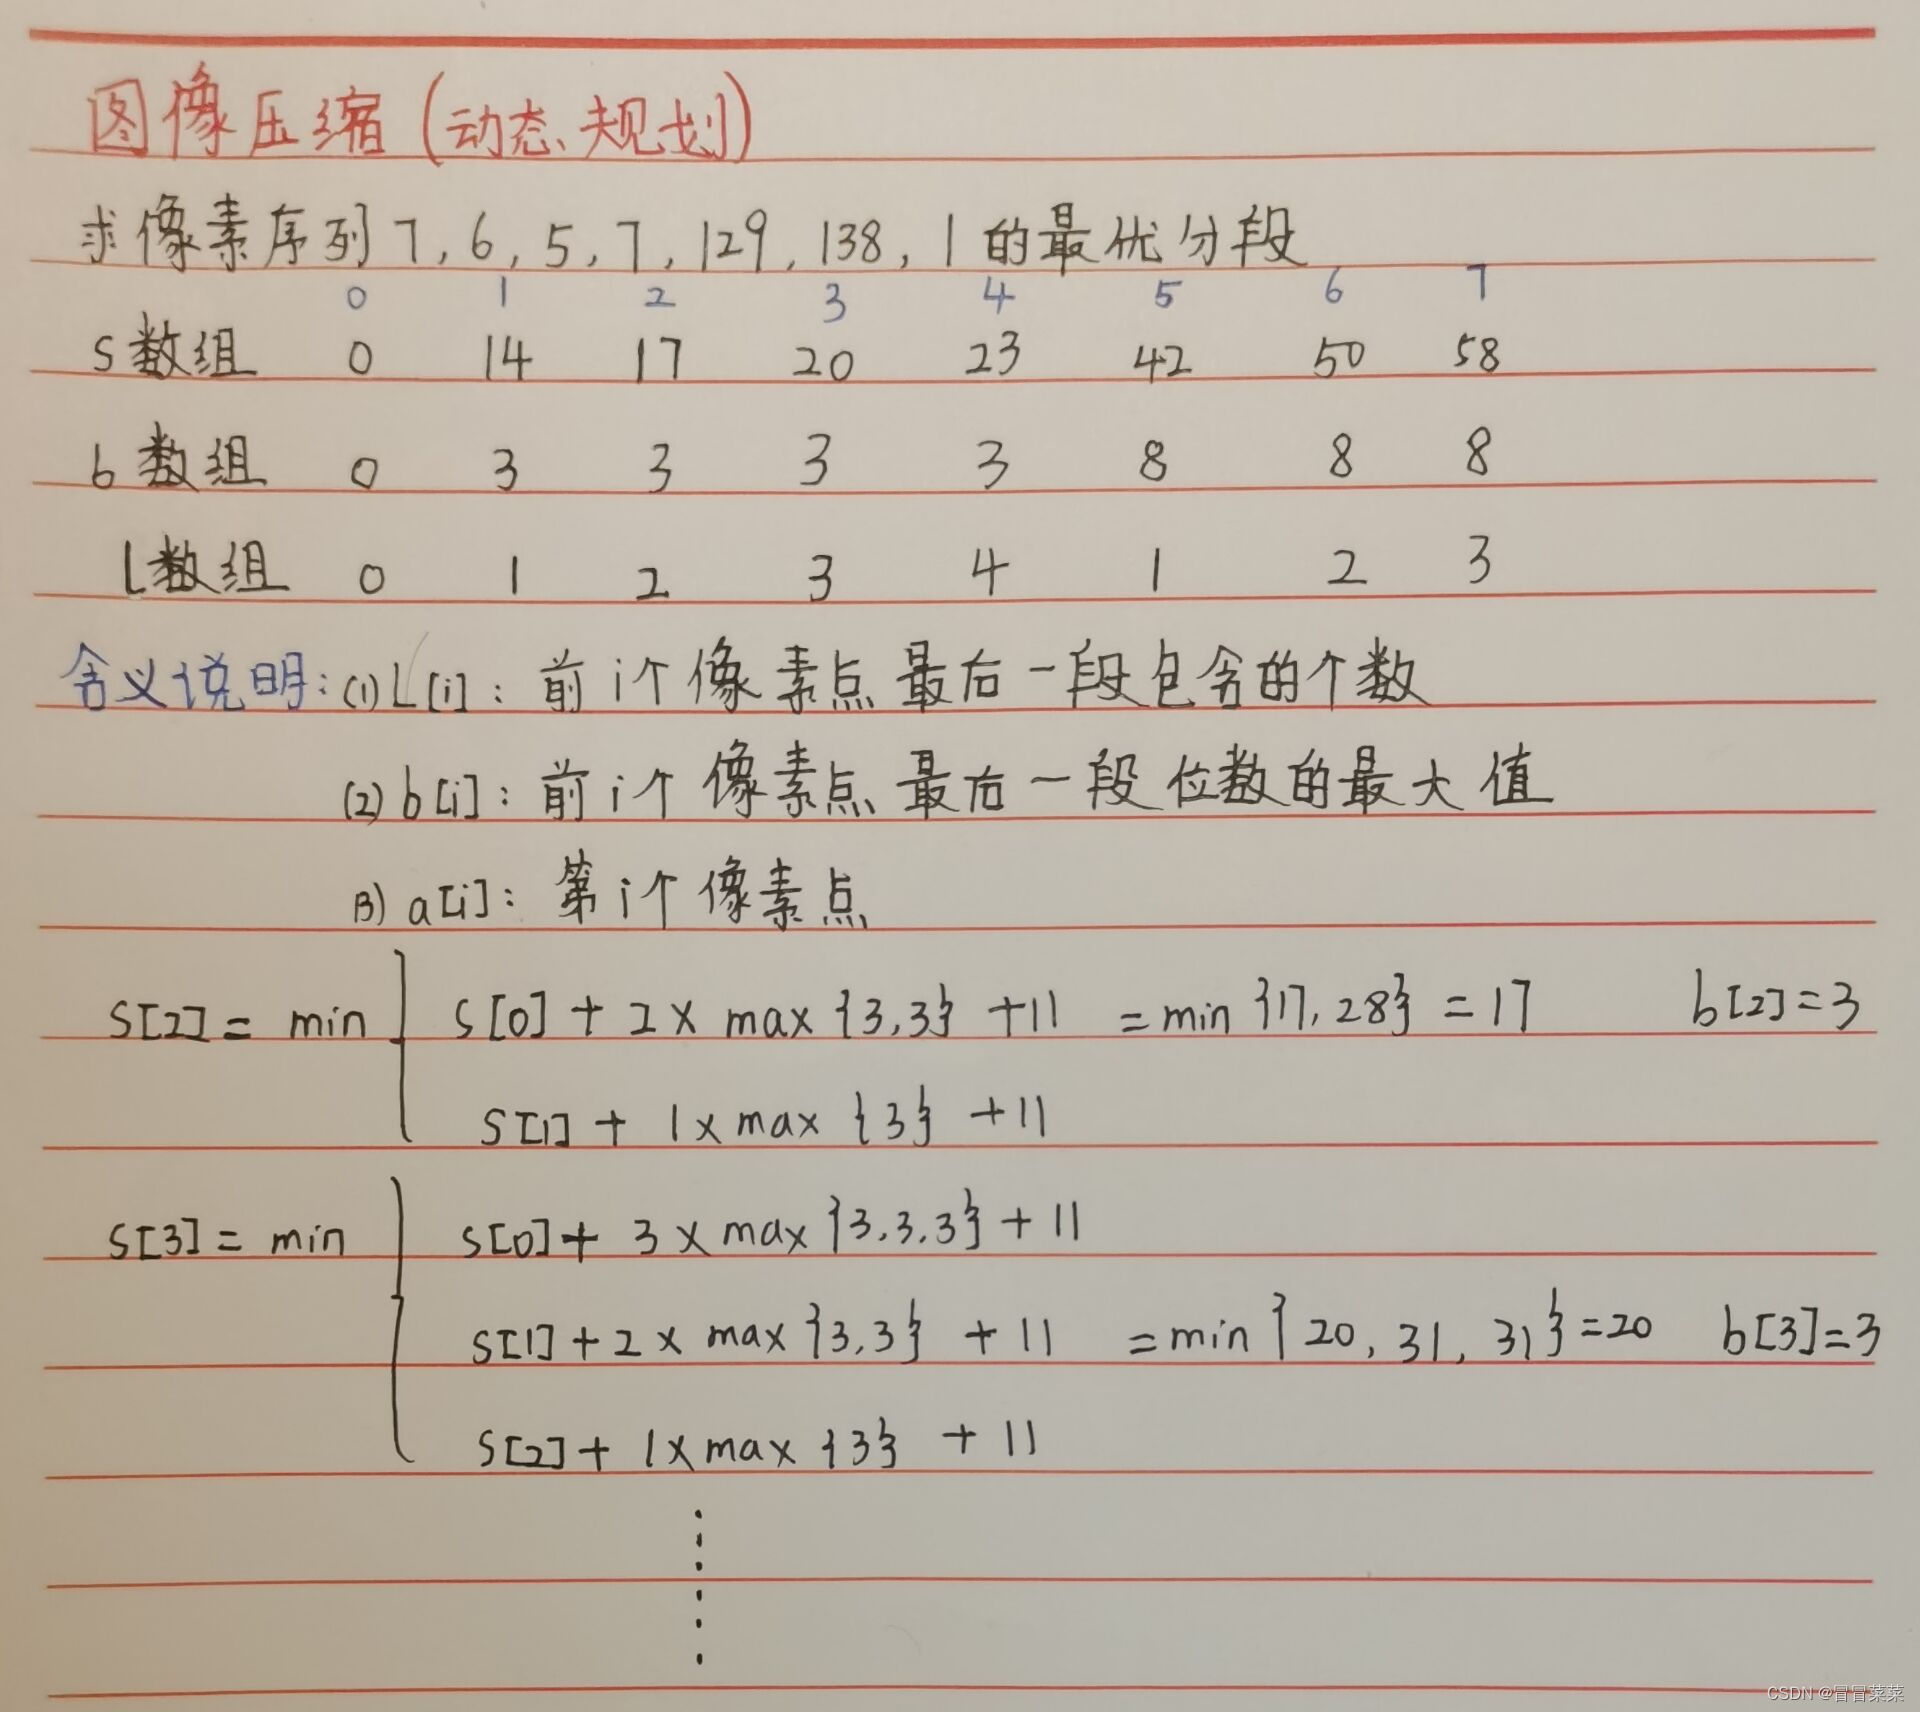 图像压缩(动态规划)
求像素序列7,6,5,7,129,138,1的最优分段
0 1 2 3 4 5 6 7
S数组 0 14 17 20 23 42 50 58
b数组 0 3 3 3 3 8 8 8
L数组 0 1 2 3 4 1 2 3
含义说明:(1)L[i]:前i个像素点最后一段包含的个数
(2)b[i]:前i个像素点最后一段位数的最大值
(3)a[i]:第i个像素点
S[2]=min{ S[0]+2×max{3,3}+11 =min{17,28}=17 b[2]=3
S[1]+1×max{3}+11
S[3]=min{ S[0]+3×max{3,3,3}+11
S[1]+2×max{3,3}+11 =min{20,31,31}=20 b[3]=3
S[2]+1×max{3}+11
CSDN @冒冒菜菜